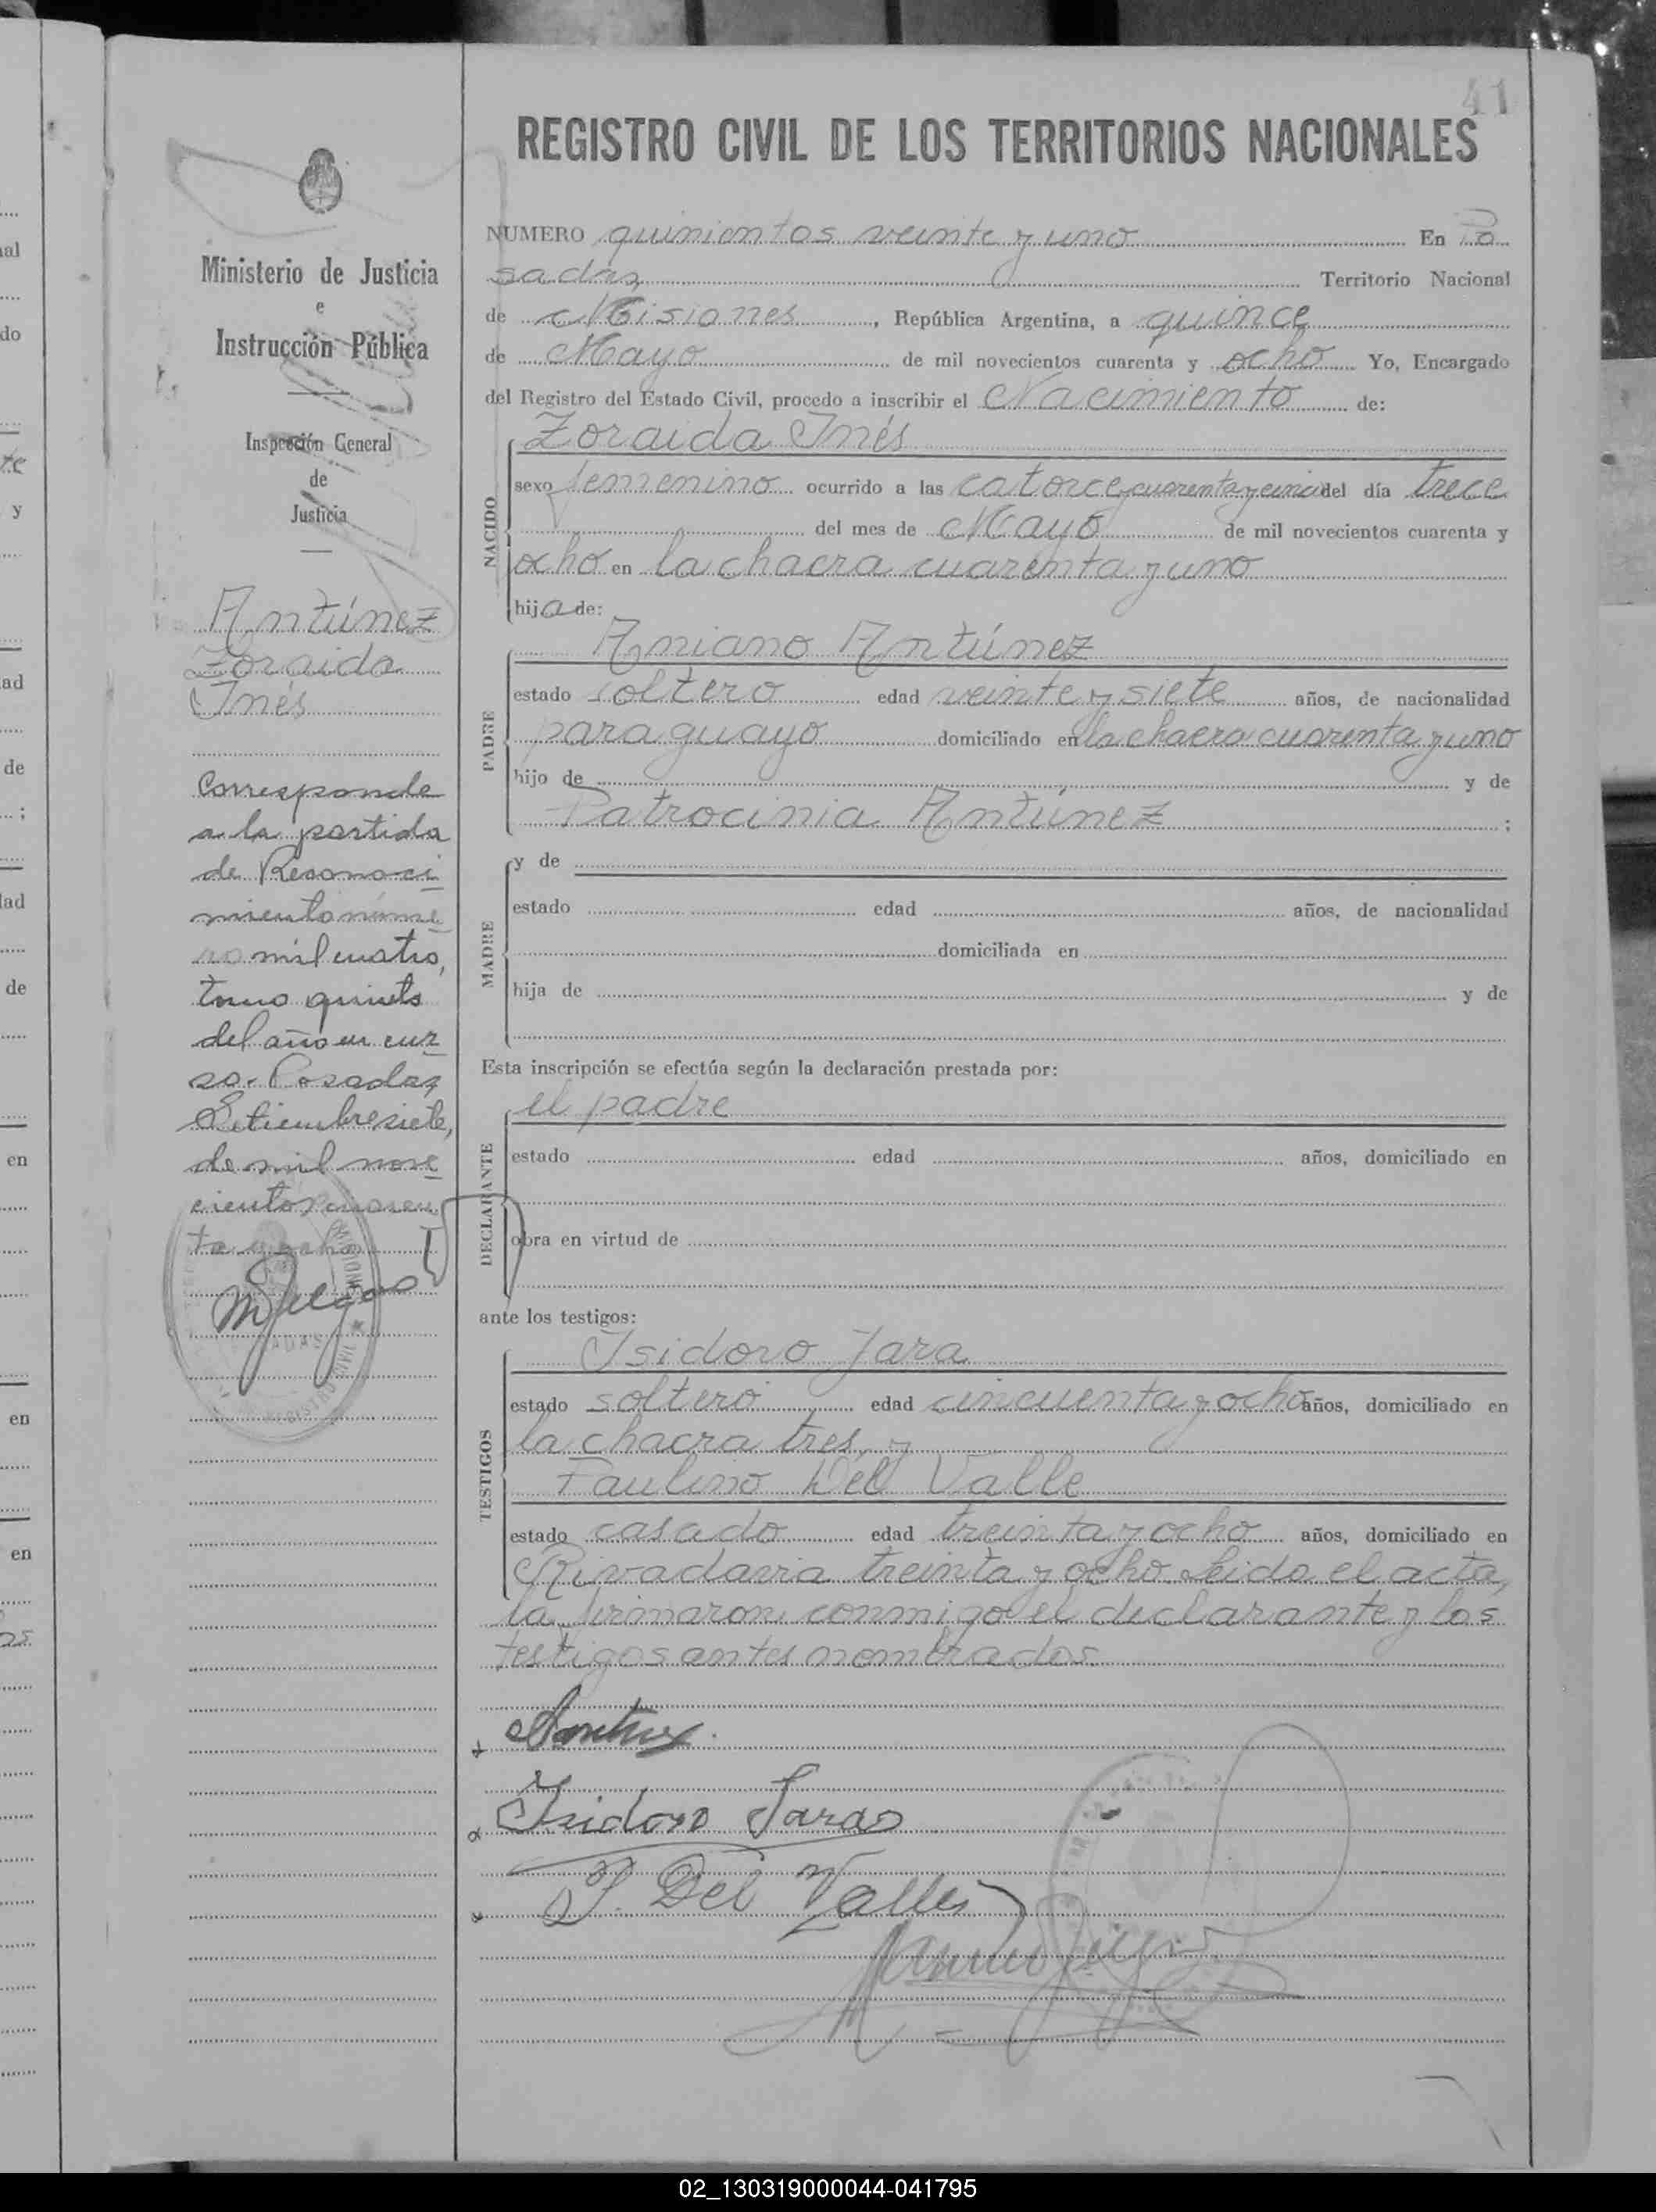 41
REGISTRO CIVIL DE LOS TERRITORIOS NACIONALES
Ministerio de Justicia
e
Instrucción Pública
Inspección General
de
Justicia
Antúnez
Zoraida
Inés
Corresponde
a la partida
de Reconoci
miento núme
ro mil cuatro,
tomo quinto
del año en cur
so. Posadas,
Setiembre siete,
de mil nove
cientos cuaren
ta y ocho
NUMERO quinientos veinte y uno En Po
sadas, Territorio Nacional
de Misiones, República Argentina, a quince
de Mayo de mil novecientos cuarenta y ocho Yo, Encargado
del Registro del Estado Civil, procedo a inscribir el Nacimiento de:
NACIDO
Zoraida Inés
sexo femenino ocurrido a las catorce y cuarenta y cinco del día trece
del mes de Mayo de mil novecientos cuarenta y
ocho en la chacra cuarenta y uno
hija de:
PADRE
Aniano Antúnez
estado soltero edad veinte y siete años, de nacionalidad
paraguayo domiciliado en la chacra cuarenta y uno
hijo de y de
Patrocinia Antúnez ;
MADRE
y de
estado edad años, de nacionalidad
domiciliada en
hija de y de
Esta inscripción se efectúa según la declaración prestada por:
DECLARANTE
el padre
estado edad años, domiciliado en
obra en virtud de
ante los testigos:
TESTIGOS
Isidoro Jara
estado soltero edad cincuenta y ocho años, domiciliado en
la chacra tres, y
Paulino Del Valle
estado casado edad treinta y ocho años, domiciliado en
Rivadavia treinta y ocho. Leida el acta,
la firmaron conmigo el declarante y los
testigos antes nombrados
Isidoro Jara
P. Del Valle
02_130319000044-041795